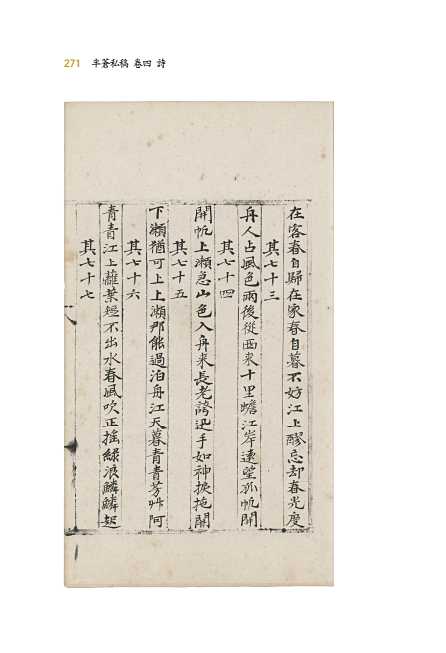 271 半蒼私稿 卷四 詩
在客春自歸在家春自暮不好江上醪忘却春光度
其七十三
舟人占風色雨後從西來十里蟾江岸遠望孤帆開
其七十四
開帆上瀨急山色入舟來長老誇迅手如神捩拖開
其七十五
下瀨猶可上上瀨那能過泊舟江天暮青青芳艸阿
其七十六
青青江上蘿葉短不出水春風吹正搖綠浪鱗鱗起
其七十七